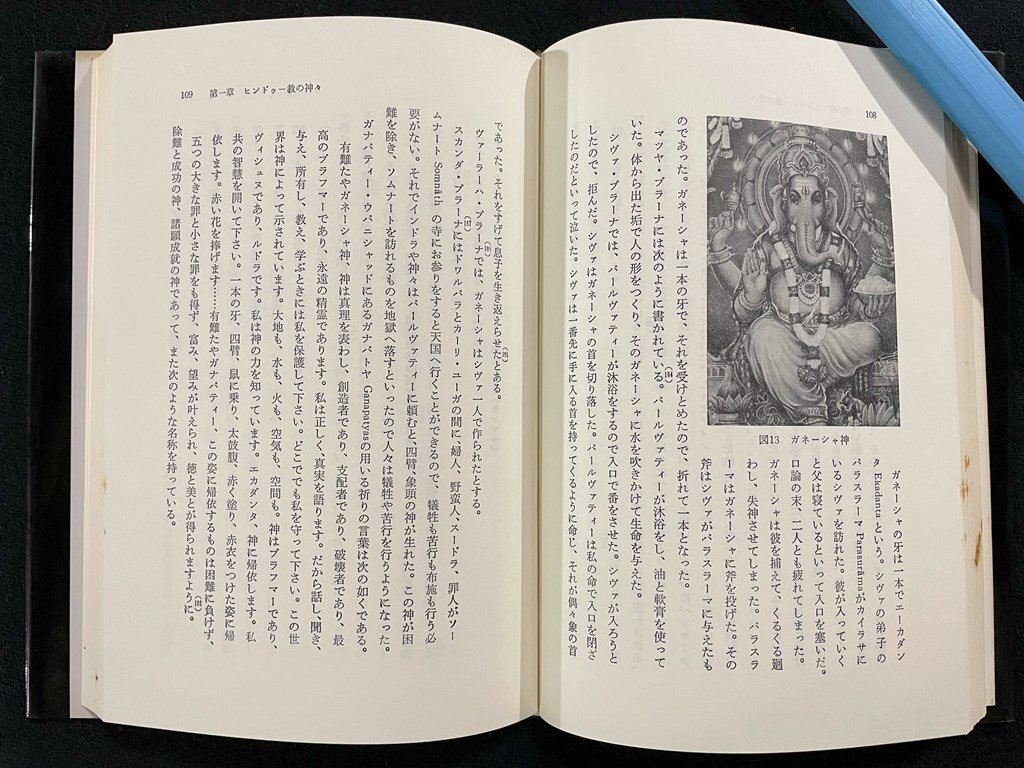 108
図13 ガネーシャ神
ガネーシャの牙は一本でエーカダン
タ Ekadanta という。シヴァの弟子の
パラスラーマ Parasurāma がカイラサに
いるシヴァを訪れた。彼が入っていく
と父は寝ているといって入口を塞いだ。
口論の末、二人とも疲れてしまった。
ガネーシャは彼を捕えて、くるくる廻
わし、失神させてしまった。パラスラ
ーマはガネーシャに斧を投げた。その
斧はシヴァがパラスラーマに与えたも
のであった。ガネーシャは一本の牙で、それを受けとめたので、折れて一本となった。
マツヤ・プラーナには次のように書かれている。パールヴァティーが沐浴をし、油と軟膏を使って
いた。体から出た垢で人の形をつくり、そのガネーシャに水を吹きかけて生命を与えた。
シヴァ・プラーナでは、パールヴァティーが沐浴をするので入口で番をさせた。シヴァが入ろうと
したので、拒んだ。シヴァはガネーシャの首を切り落した。パールヴァティーは私の命で入口を閉ざ
したのだといって泣いた。シヴァは一番先に手に入る首を持ってくるように命じ、それが偶々象の首
109 第一章 ヒンドゥー教の神々
であった。それをすげて息子を生き返えらせたとある。
ヴァーラーハ・プラーナでは、ガネーシャはシヴァ一人で作られたとする。
スカンダ・プラーナにはドワルパラとカーリ・ユーガの間に、婦人、野蛮人、スードラ、罪人がソー
ムナート Somnāth の寺にお参りをすると天国へ行くことができるので、犠牲も苦行も布施も行う必
要がない。それでインドラや神々はパールヴァティーに頼むと、四臂、象頭の神が生れた。この神が困
難を除き、ソムナートを訪れるものを地獄へ落すといったので人々は犠牲や苦行を行うようになった。
ガナパティー・ウパニシャッドにあるガナパトヤ Ganapatyas の用いる祈りの言葉は次の如くである。
有難たやガネーシャ神、神は真理を表わし、創造者であり、支配者であり、破壊者であり、最
高のブラフマーであり、永遠の精霊であります。私は正しく、真実を語ります。だから話し、聞き、
与え、所有し、教え、学ぶときには私を保護して下さい。どこでも私を守って下さい。この世
界は神によって示されています。大地も、水も、火も、空気も、空間も。神はブラフマーであり、
ヴィシュヌであり、ルドラです。私は神の力を知っています。エカダンタ、神に帰依します。私
共の智慧を開いて下さい。一本の牙、四臂、鼠に乗り、太鼓腹、赤く塗り、赤衣をつけた姿に帰
依します。赤い花を捧げます……有難たやガナパティー、この姿に帰依するものは困難に負けず、
五つの大きな罪と小さな罪をも得ず、富み、望みが叶えられ、徳と美とが得られますように。
除難と成功の神、諸願成就の神であって、また次のような名称を持っている。